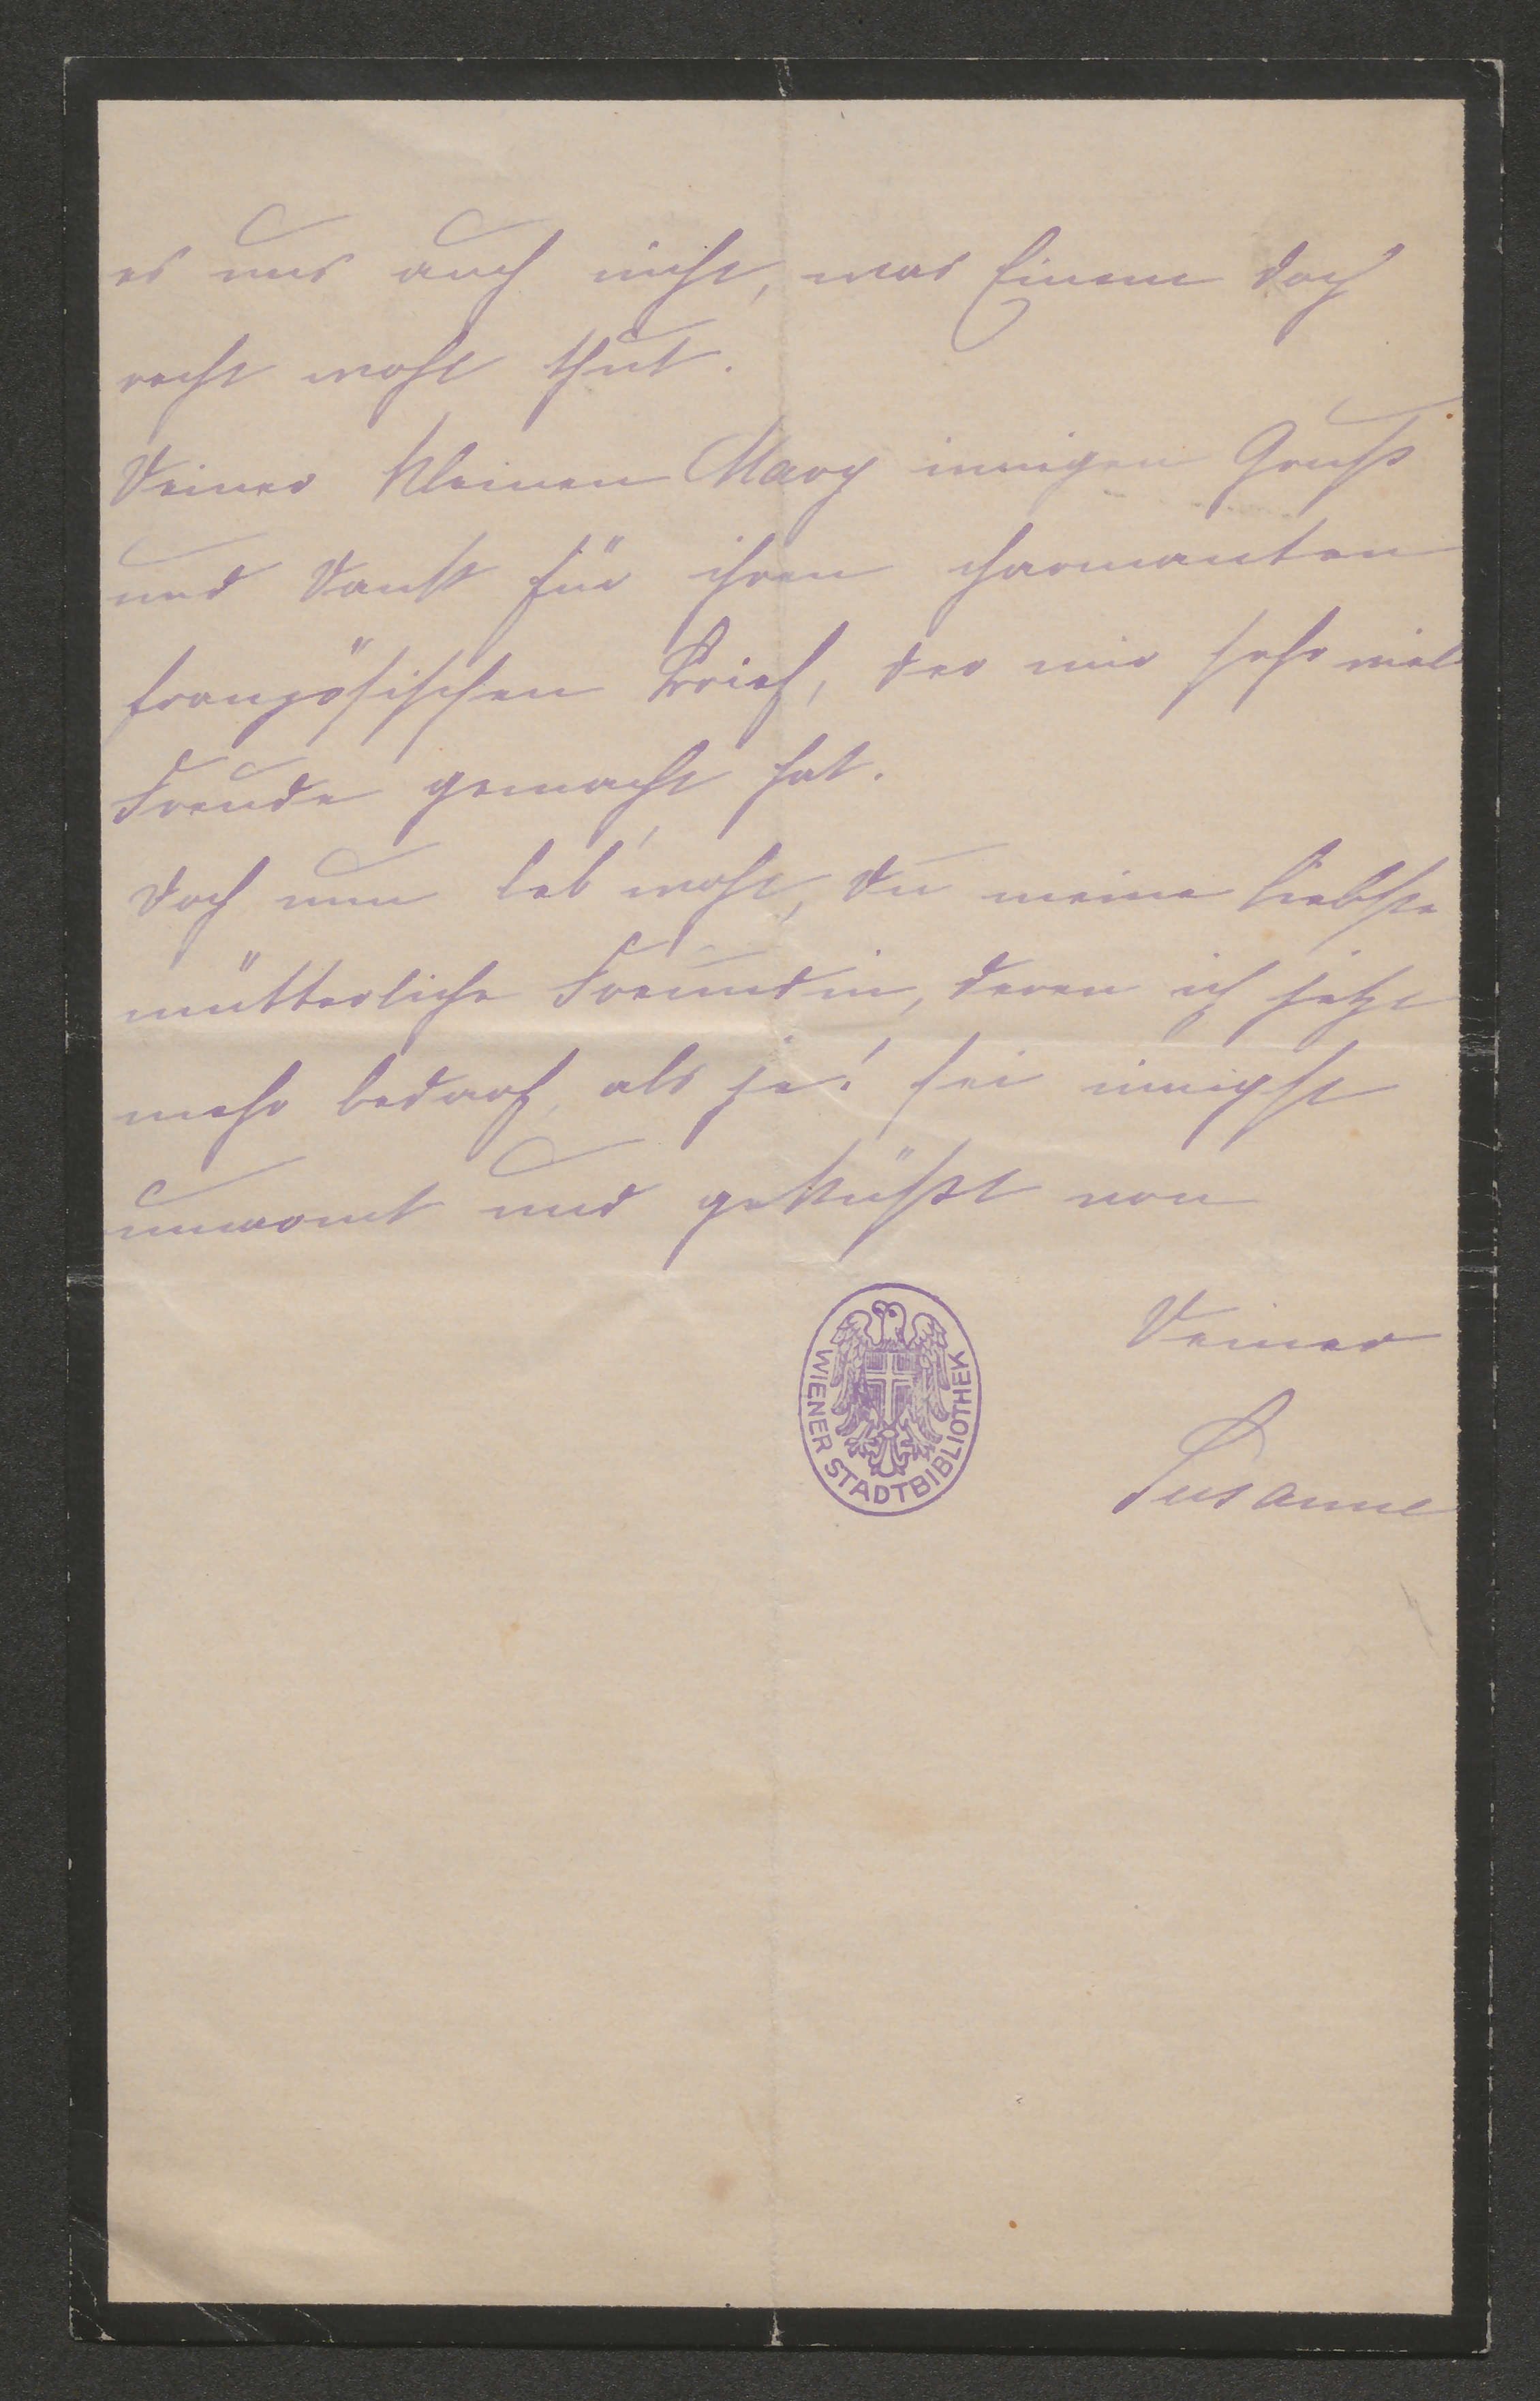 es uns auch nicht, was Einem doch
recht wohl thut.
Deiner kleinen Mary innigen Gruß
und Dank für ihren charmanten
französischen Brief, der mir sehr viel
Freude gemacht hat.
Doch nun leb' wohl, du meine liebste
mütterliche Freundin, deren ich jetzt
mehr bedarf, als je! Sei innigst
umarmt und geküßt von
Deiner
Susanne
WIENER STADTBIBLIOTHEK